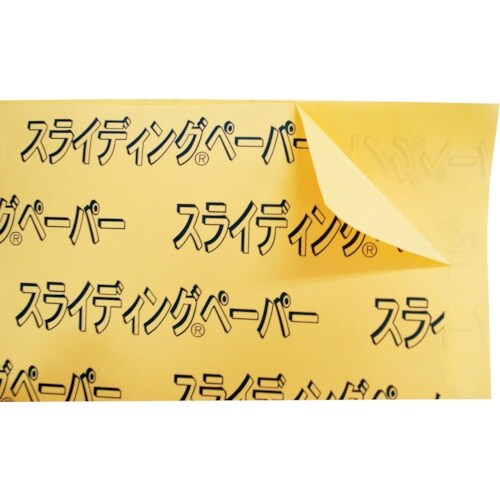 スライディング®ペーパー
グペーパー スライディング®ペ
スライディング®ペーパー スライ
ペーパー スライディング®ペーパー